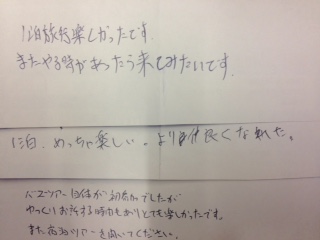 1泊旅行楽しかったです。
またやる時があったら来てみたいです。
1泊、めっちゃ楽しい。より仲良くなれた。
バスツアー自体が初めてでしたが
ゆっくりお話する時間もありとても楽しかったです。
また宿泊ツアーを開いてください。